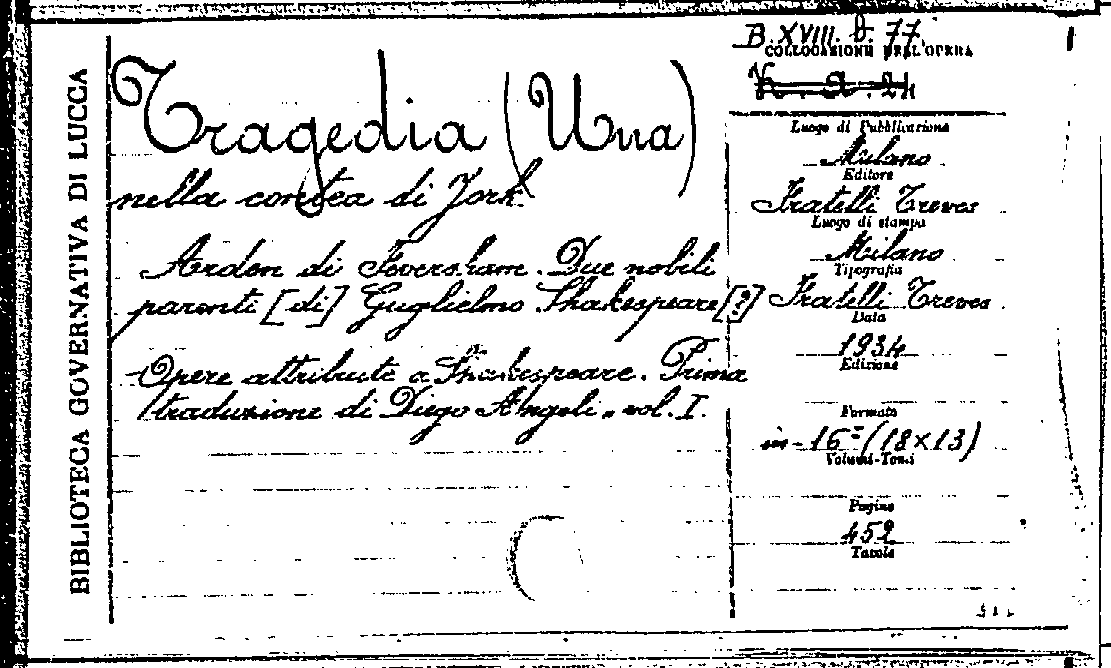 BIBLIOTECA GOVERNATIVA DI LUCCA
Tragedia (Una)
nella contea di York.
Arden di Feversham. Due nobili
parenti [di] Guglielmo Shakespeare [?]
Opere attribuite a Shakespeare. Prima
traduzione di Diego Angeli. vol. I.
B. XVIII. D. 77.
COLLOCAZIONE DELL'OPERA
Luogo di Pubblicazione
Milano
Editore
Fratelli Treves
Luogo di stampa
Milano
Tipografia
Fratelli Treves
Data
1934
Edizione
Formato
in-16° (18×13)
Volumi-Tomi
Pagine
452
Tavole